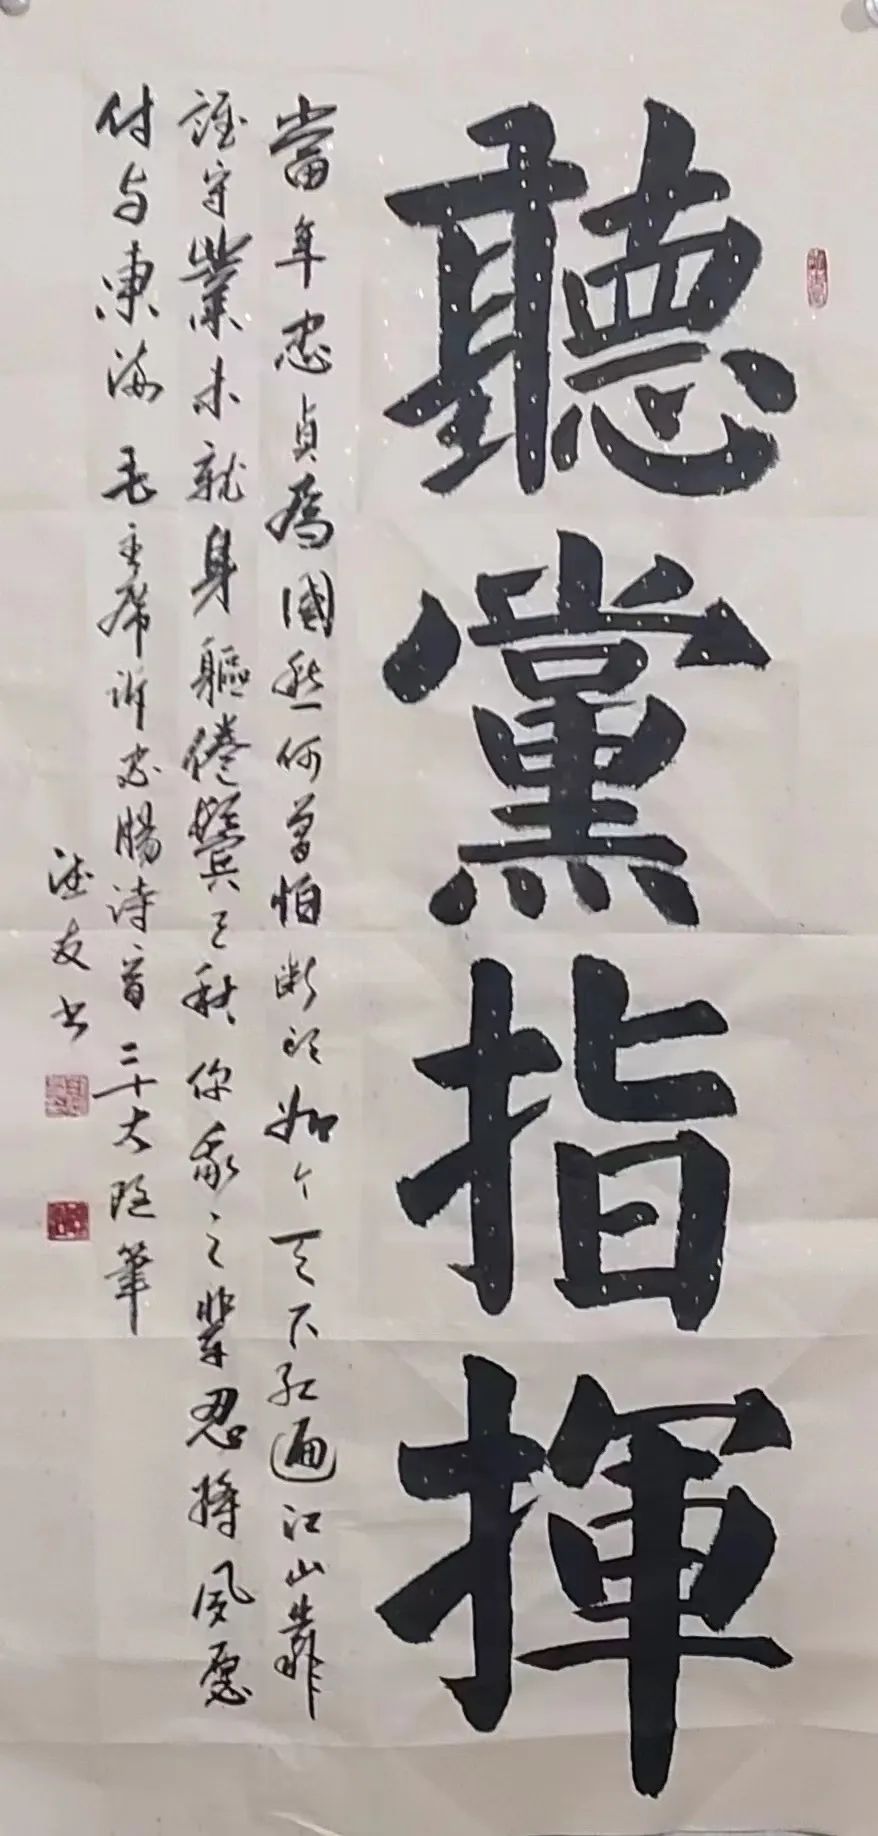 聽黨指揮
當年忠貞為國愁何曾怕斷頭如今天下紅遍江山靠
誰守業未就身軀倦鬢已秋你我之輩忍將夙愿
付与東海毛主席訴忠腸詩首二十大隨筆
德友书